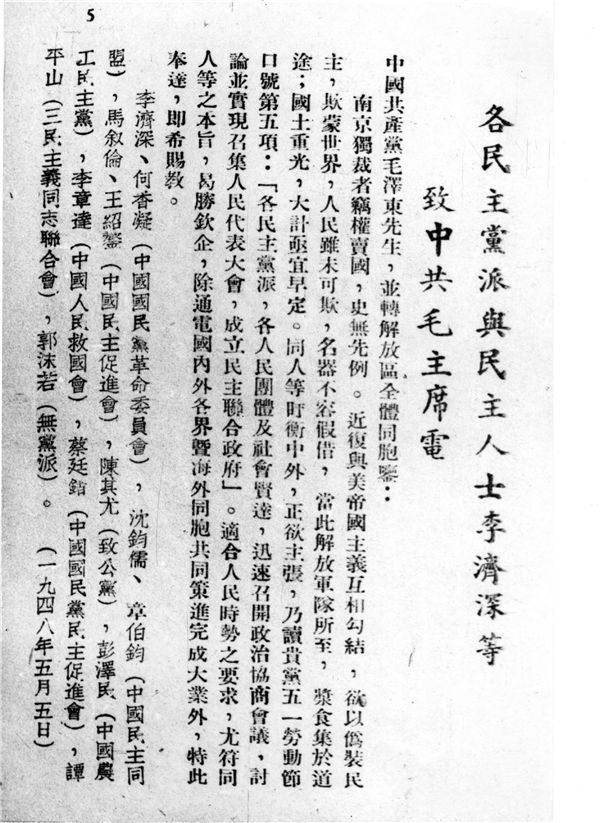 5
各民主黨派與民主人士李濟深等
致中共毛主席電
中國共產黨毛澤東先生，並轉解放區全體同胞鑒：
南京獨裁者竊權賣國，史無先例。近復與美帝國主義互相勾結，欲以僞裝民
主，欺蒙世界，人民雖未可欺，名器不容假借，當此解放軍隊所至，漿食集於道
途；國土重光，大計亟宜早定。同人等盱衡中外，正欲主張，乃讀貴黨五一勞動節
口號第五項：「各民主黨派，各人民團體及社會賢達，迅速召開政治協商會議，討
論並實現召集人民代表大會，成立民主聯合政府」。適合人民時勢之要求，尤符同
人等之本旨，曷勝欽企，除通電國內外各界暨海外同胞共同策進完成大業外，特此
奉達，即希賜教。
李濟深、何香凝（中國國民黨革命委員會），沈鈞儒、章伯鈞（中國民主同
盟），馬叙倫、王紹鏊（中國民主促進會），陳其尤（致公黨），彭澤民（中國農
工民主黨），李章達（中國人民救國會），蔡廷鍇（中國國民黨民主促進會），譚
平山（三民主義同志聯合會），郭沫若（無黨派）。　（一九四八年五月五日）